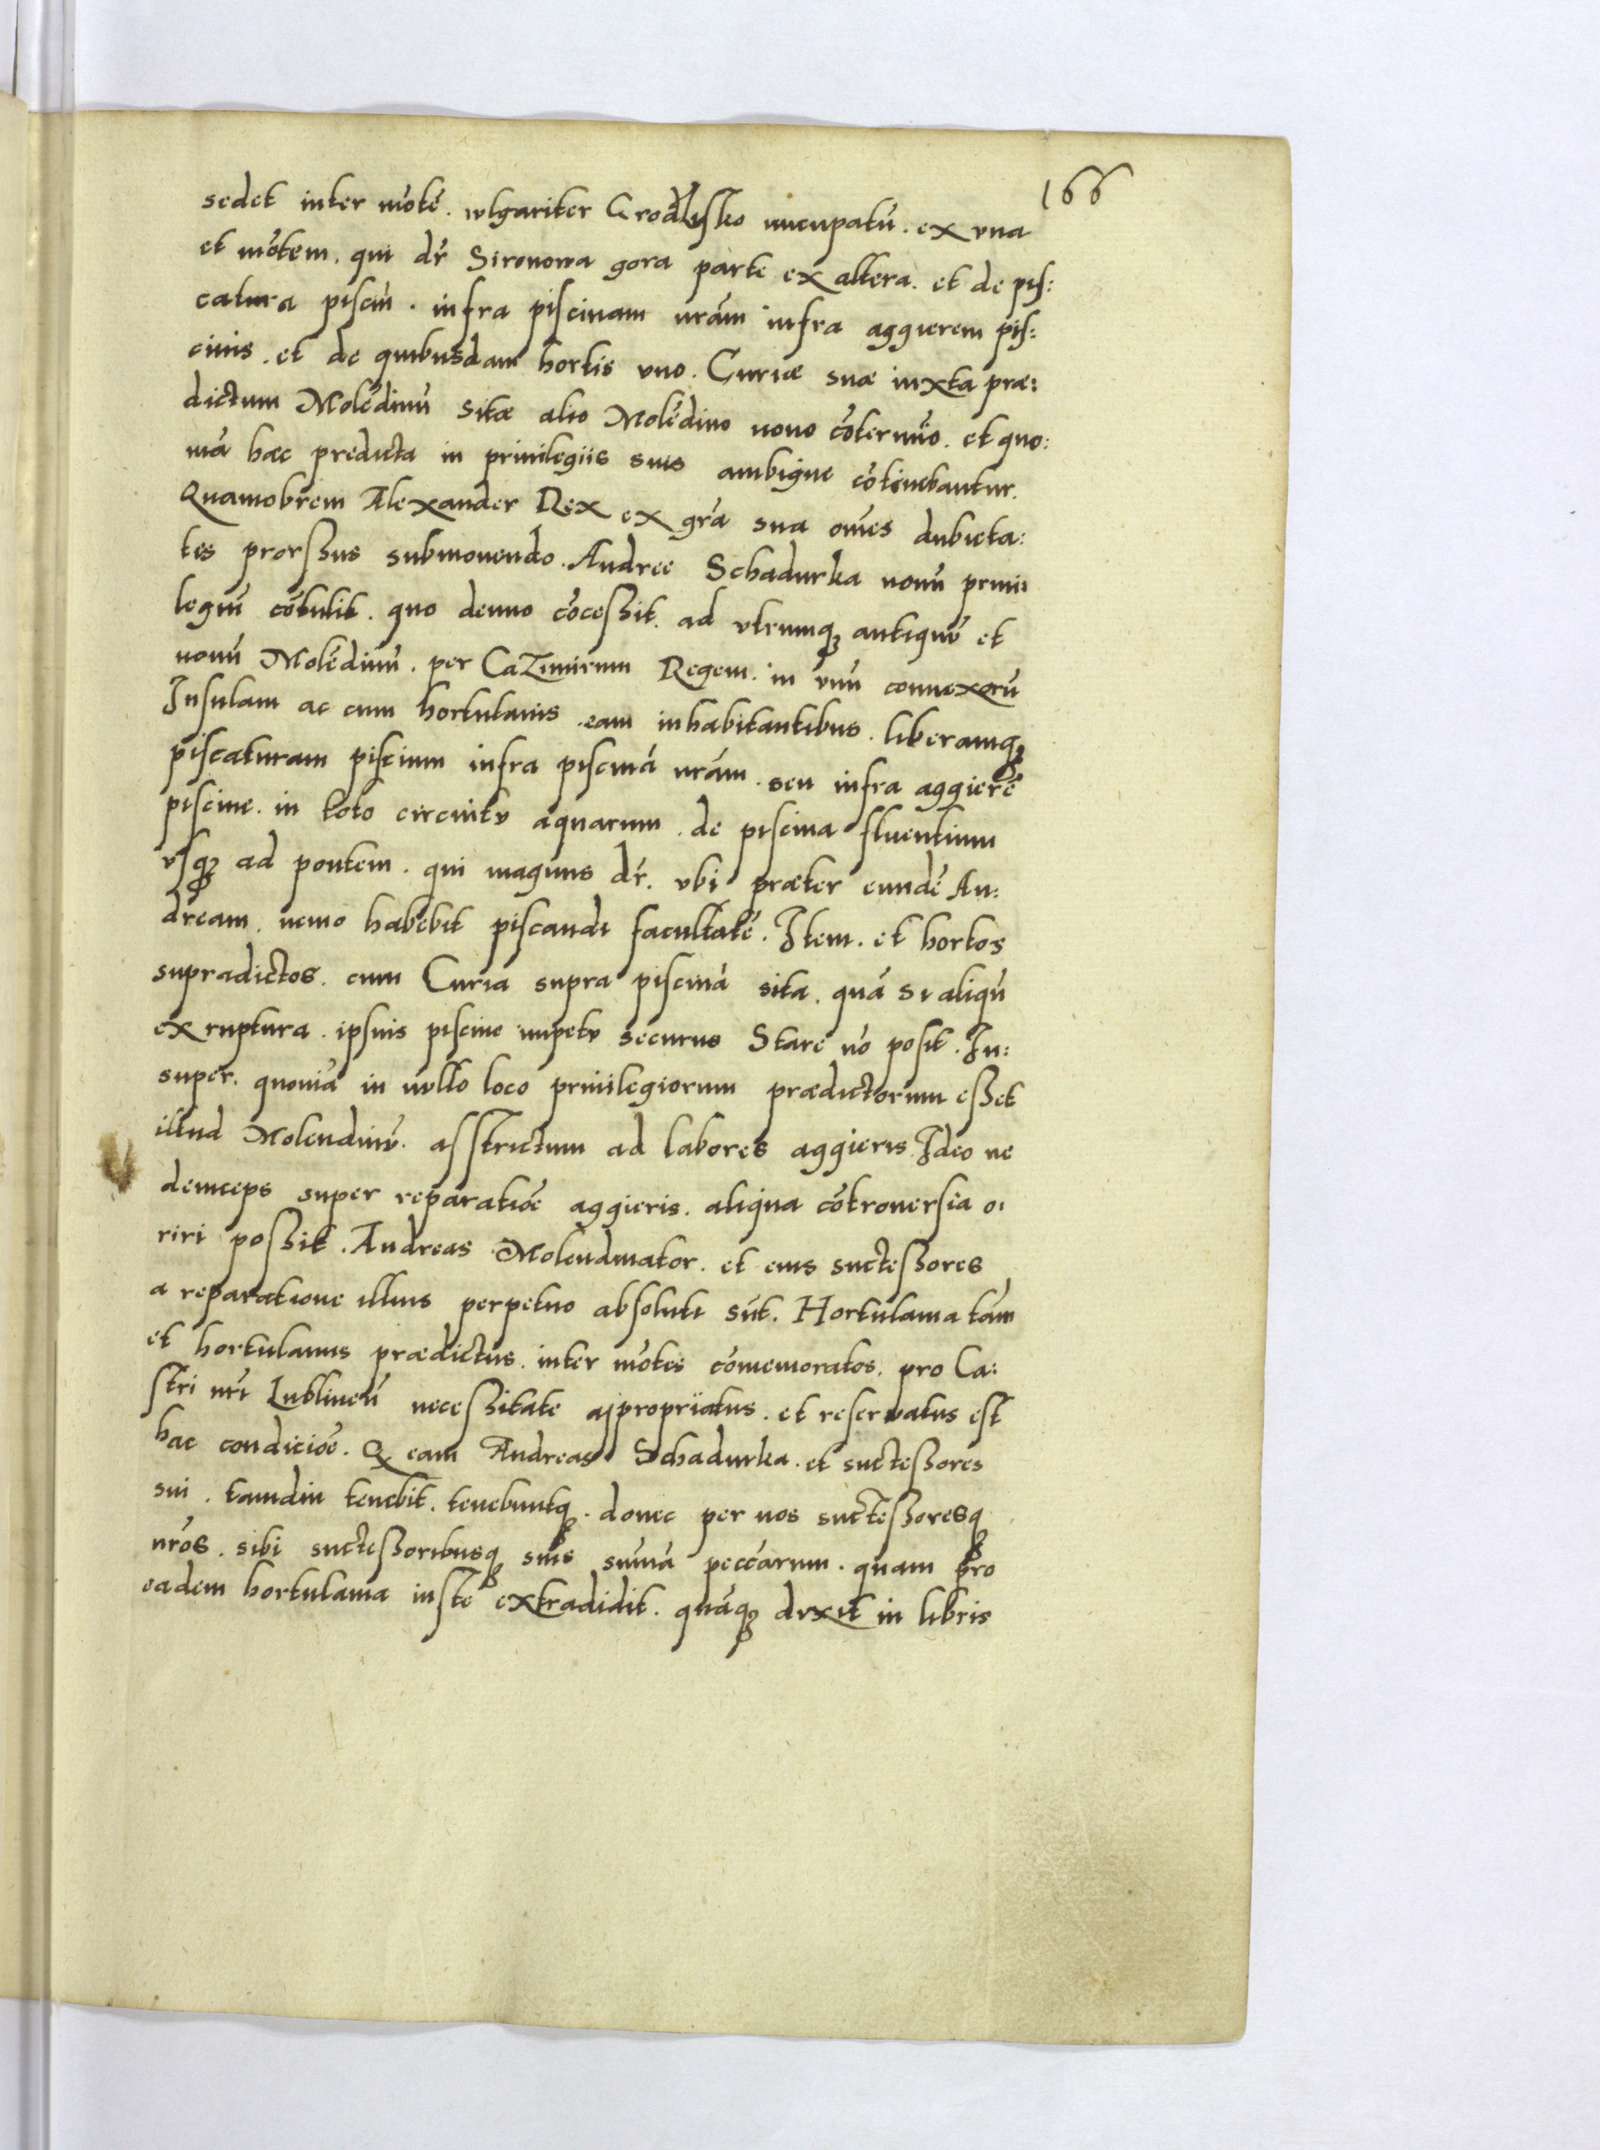 166
sedet inter mõtẽ. wlgariter Grodzisko nucupatũ. ex vna
et mõtem. qui dr̃ Sironowa gora parte ex altera. et de pis:
catura pisciũ. infra piscinam nrãm infra aggierem pis:
cinis. et de quibusdam hortis vno. Curiæ suæ iuxta præ:
dictum Molẽdinũ sitæ alio Molẽdino nouo cõtermĩo. et quo:
niã hæc predicta in priuilegiis suis ambigue cõtinebantur.
Quamobrem Alexander Rex ex grã sua oẽs dubieta:
tes prorssus submouendo. Andree Schadurka nouũ priui:
legiũ cõtulit. quo denuo cõcessit. ad vtrumqꝫ antiquũ et
nouũ Molẽdinũ. per Cazimirum Regem. in vnũ connexorũ
Insulam ac cum hortulanis. eam inhabitantibus. liberamqꝫ
piscaturam piscium infra piscinã nrãm. seu infra aggierẽ
piscine. in toto circuitu aquarum. de piscina fluentium
vsqꝫ ad pontem. qui magnus dr̃. vbi præter eundẽ An:
dream. nemo habebit piscandi facultatẽ. Item. et hortos
supradictos. cum Curia supra piscinã sita. quã si aliqũ
ex ruptura. ipsius piscine impetu securus Stare nõ posit. In:
super. quoniã in nvllo loco priuilegiorum prædictorum esset
illud Molendinũ. asstrictum ad labores aggieris. Ideo ne
deinceps super reparatiõe aggieris. aliqua cõtrouersia o:
riri possit. Andreas Molendinator. et eius suctessores
a reparatione illius perpetuo absoluti sũt. Hortulania tãm
et hortulanus prædictus. inter mõtes cõmemoratos. pro Ca:
stri nrĩ Lublineñ necessitate appropriatus. et reseruatus est
hac condiciõe. Q eam Andreas Schadurka. et suctessores
sui. tamdiu tenebit. tenebuntqꝫ. donec per nos suctessoresqꝫ
nrõs. sibi suctessoribusqꝫ suis sũmã peccãrum. quam pro
eadem hortulania iustẽ extradidit. quãqꝫ duxit in libris